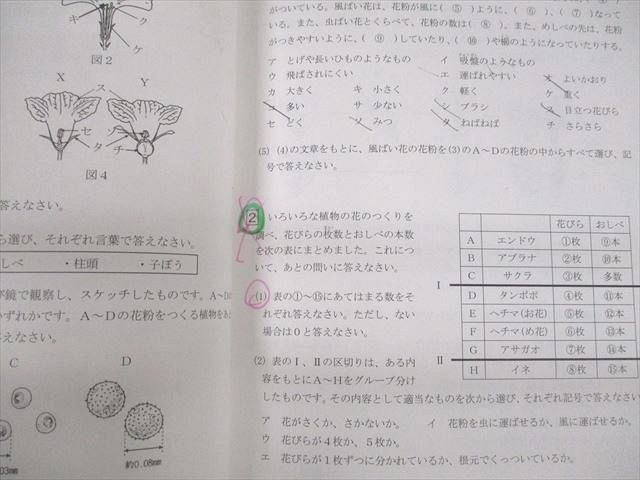 キ ク
ケ
図2
X Y
ス
セ ソ
タ チ
図4
答えなさい。
ら選び、それぞれ言葉で答えなさい。
しべ ・柱頭 ・子ぼう
び鏡で観察し、スケッチしたものです。A〜D
いずれかです。A〜Dの花粉をつくる植物をあ
答えなさい。
C D
.03mm 約0.08mm
がついている。風ばい花は、花粉が風に( ⑤ )ように、( ⑥ )、( ⑦ )なって
いる。また、虫ばい花とくらべて、花粉の数は( ⑧ )。また、めしべの先は、花粉
がつきやすいように、( ⑨ )していたり、( ⑩ )や櫛のようになっていたりする。
ア とげや長いひものようなもの イ 吸盤のようなもの
ウ 飛ばされにくい エ 運ばれやすい オ よいかおり
カ 大きく キ 小さく ク 軽く ケ 重く
コ 多い サ 少ない シ ブラシ ス 目立つ花びら
セ どく ソ みつ タ ねばねば チ さらさら
(5) (4)の文章をもとに、風ばい花の花粉を(3)のA〜Dの花粉の中からすべて選び、記
号で答えなさい。
2 いろいろな植物の花のつくりを
調べ、花びらの枚数とおしべの本数
を次の表にまとめました。これにつ
いて、あとの問いに答えなさい。
(1) 表の①〜⑮にあてはまる数をそ
れぞれ答えなさい。ただし、ない
場合は0と答えなさい。
(2) 表のⅠ、Ⅱの区切りは、ある内
容をもとにA〜Hをグループ分け
したものです。その内容として適当なものを次から選び、それぞれ記号で答えなさい
ア 花がさくか、さかないか。 イ 花粉を虫に運ばせるか、風に運ばせるか。
ウ 花びらが4枚か、5枚か。
エ 花びらが1枚ずつに分かれているか、根元でくっついているか。
花びら おしべ
A エンドウ ①枚 ⑨本
B アブラナ ②枚 ⑩本
C サクラ ③枚 多数
Ⅰ
D タンポポ ④枚 ⑪本
E ヘチマ(お花) ⑤枚 ⑫本
F ヘチマ(め花) ⑥枚 ⑬本
G アサガオ ⑦枚 ⑭本
Ⅱ
H イネ ⑧枚 ⑮本